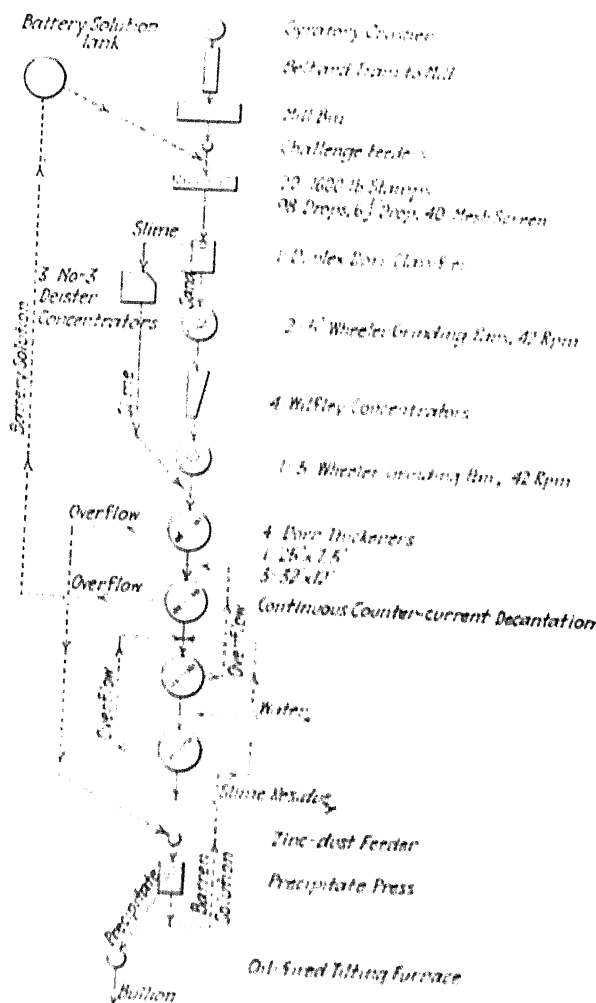 Battery Solution
Tank
Gyratory Crusher
Belt and Tram to Mill
Mill Bin
Challenge Feeders
20-1600 lb Stamps
98 Drops, 6½ Drop, 40 Mesh Screen
Slime
1-Duplex Dorr Classifier
3 No-3
Deister
Concentrators
Sand
2-5' Wheeler Grinding Pans, 42 Rpm
Battery Solution
Slime
4 Wilfley Concentrators
1-5 Wheeler Grinding Pan, 42 Rpm
Overflow
4 Dorr Thickeners
Overflow
Continuous Counter-current Decantation
Overflow
Overflow
Water
Slime Residue
Zinc-dust Feeder
Precipitate Press
Barren
Solution
Precipitate
Oil-fired Tilting Furnace
Bullion